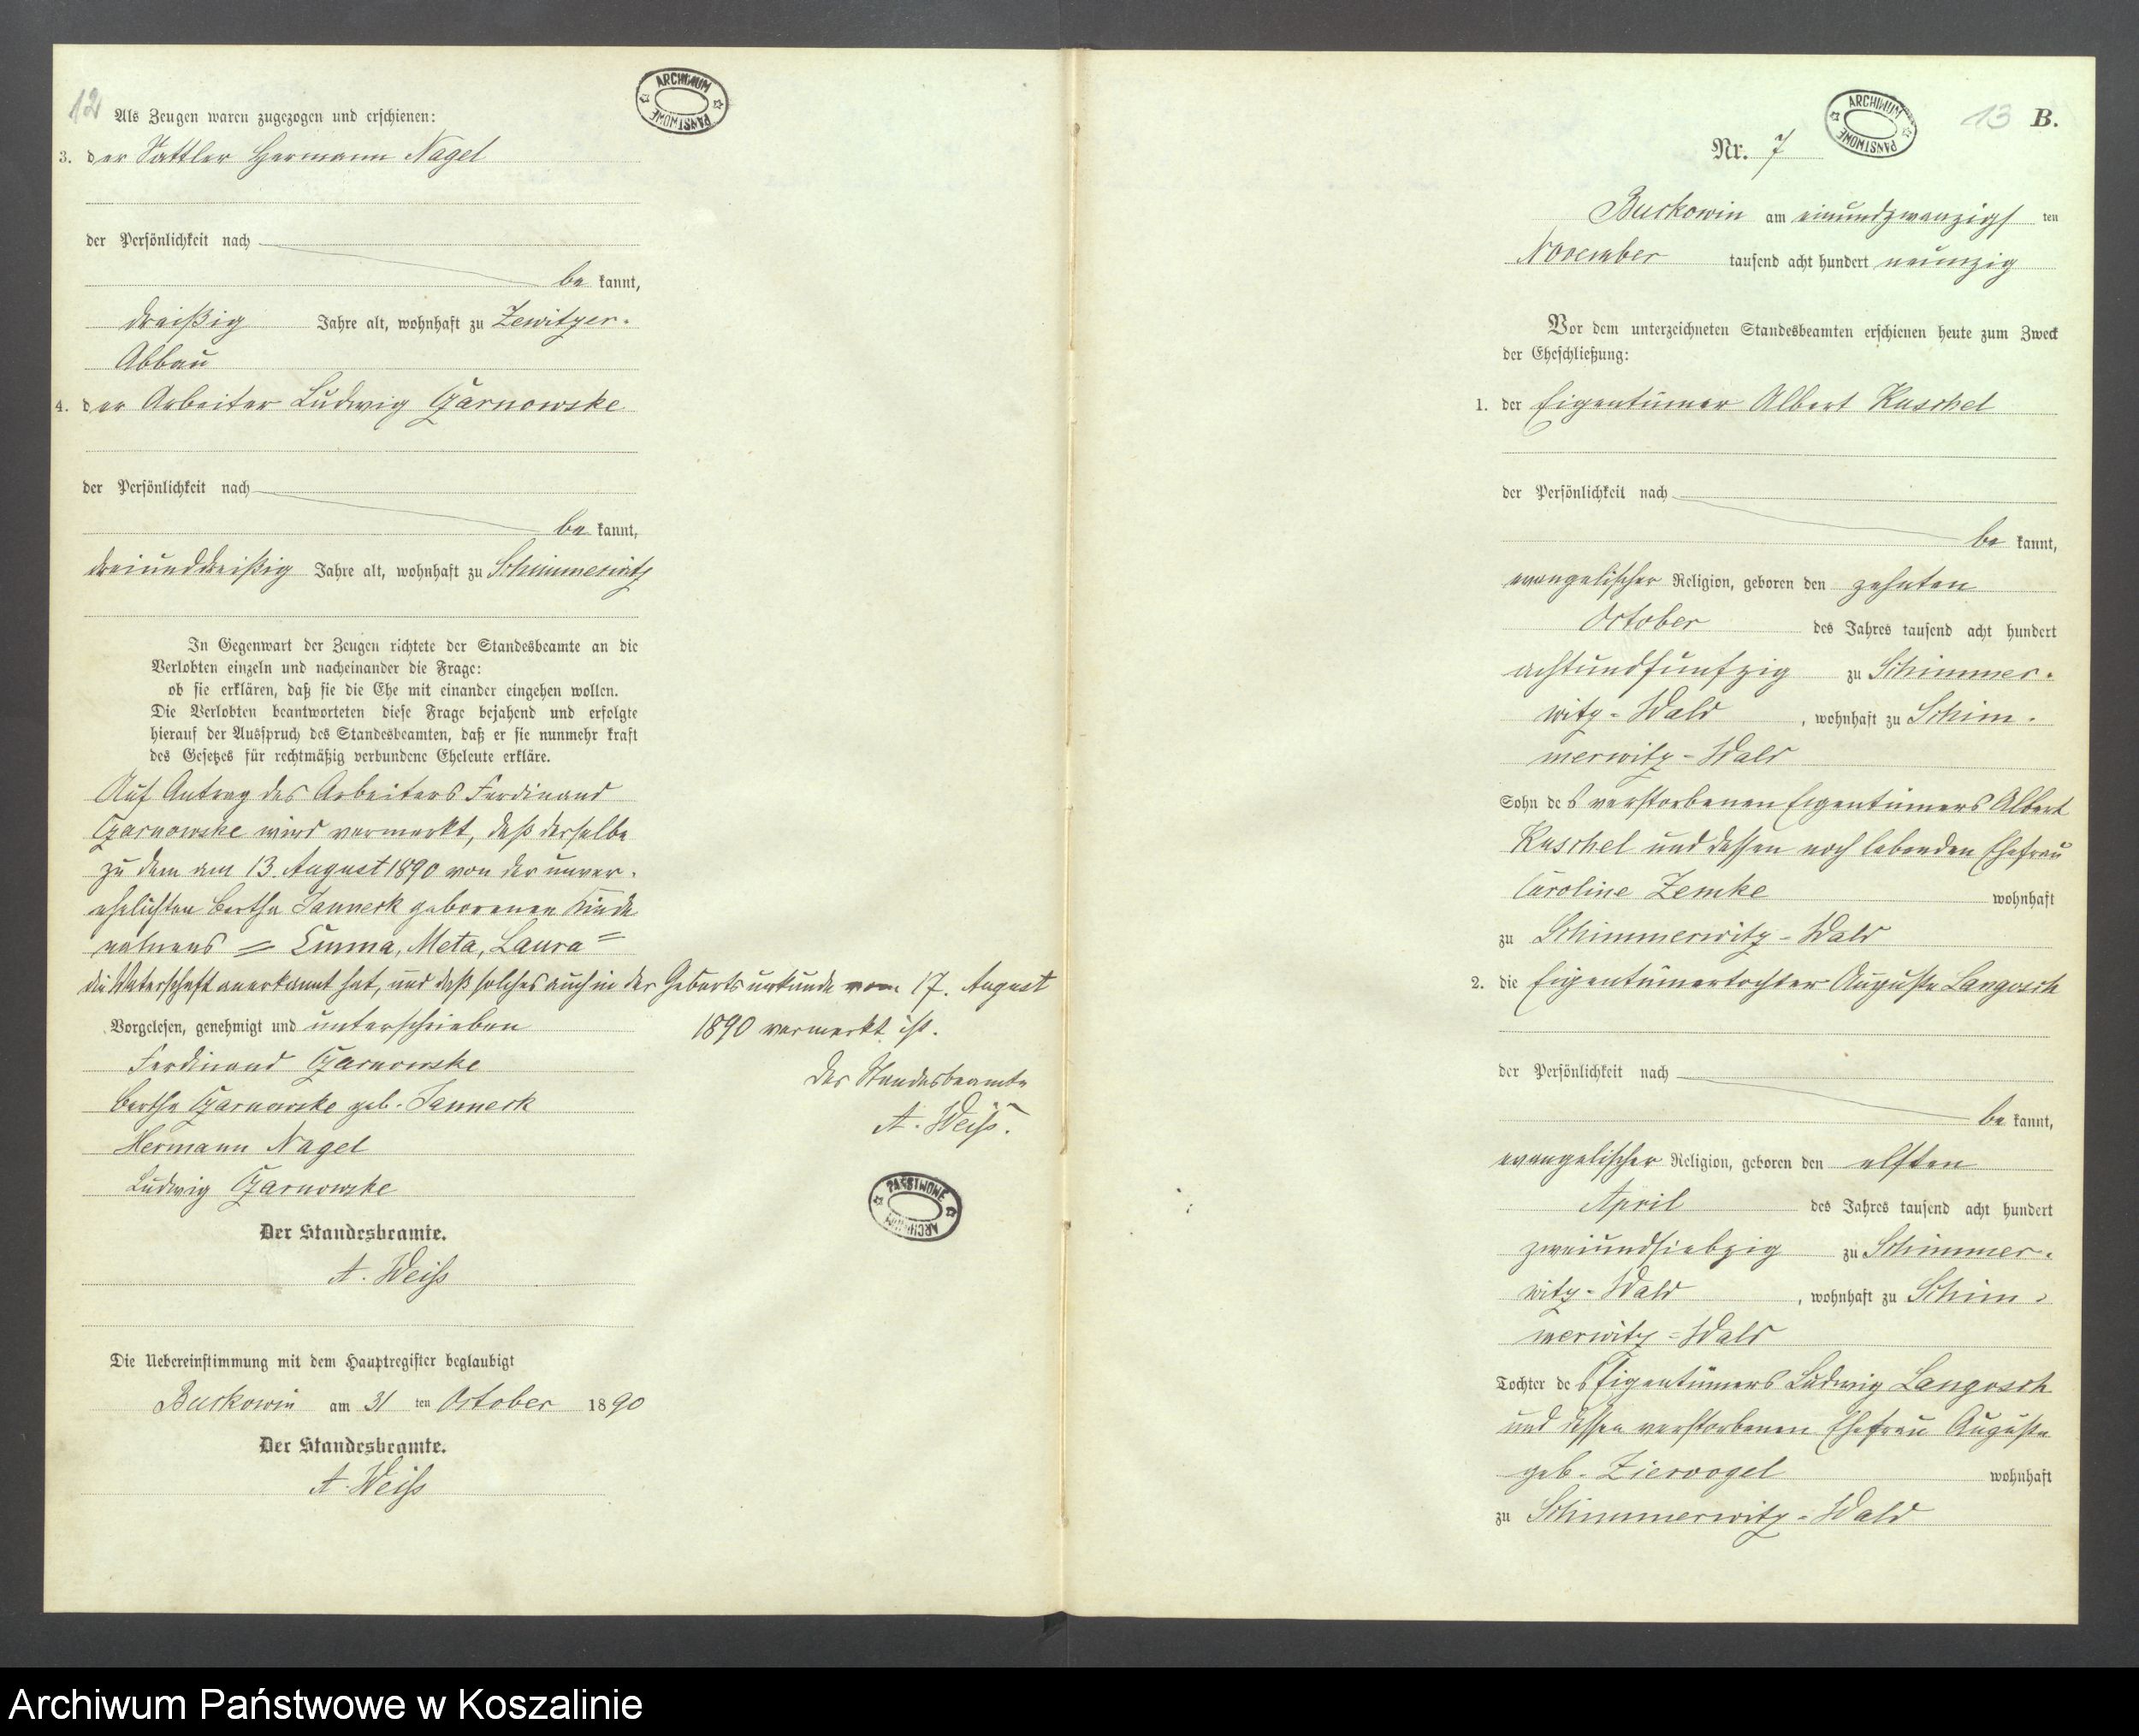 12
ARCHIWUM PAŃSTWOWE
Als Zeugen waren zugezogen und erschienen:
3. der Sattler Hermann Nagel
der Persönlichkeit nach
be kannt,
dreißig Jahre alt, wohnhaft zu Zewitzer-
Abbau
4. der Arbeiter Ludwig Czarnowske
der Persönlichkeit nach
be kannt,
dreiunddreißig Jahre alt, wohnhaft zu Schimmerwitz
In Gegenwart der Zeugen richtete der Standesbeamte an die
Verlobten einzeln und nacheinander die Frage:
ob sie erklären, daß sie die Ehe mit einander eingehen wollen.
Die Verlobten beantworteten diese Frage bejahend und erfolgte
hierauf der Ausspruch des Standesbeamten, daß er sie nunmehr kraft
des Gesetzes für rechtmäßig verbundene Eheleute erkläre.
Auf Antrag des Arbeiters Ferdinand
Czarnowske wird vermerkt, daß derselbe
zu dem am 13. August 1890 von der unver-
ehelichten Berthe Janneck geborenen Kinde
namens = Emma, Meta, Laura =
die Vaterschaft anerkannt hat, und daß solches auch in der Geburtsurkunde vom 17. August
1890 vermerkt ist.
Der Standesbeamte
A. Weiß.
PAŃSTWOWE ARCHIWUM
Vorgelesen, genehmigt und unterschrieben
Ferdinand Czarnowske
Berthe Czarnowske geb. Janneck
Hermann Nagel
Ludwig Czarnowske
Der Standesbeamte.
A. Weiß
Die Uebereinstimmung mit dem Hauptregister beglaubigt
Buckowin am 31 ten October 1890
Der Standesbeamte.
A. Weiß
ARCHIWUM PAŃSTWOWE
13 B.
Nr. 7
Buckowin am einundzwanzigs ten
November tausend acht hundert neunzig
Vor dem unterzeichneten Standesbeamten erschienen heute zum Zweck
der Eheschließung:
1. der Eigentümer Albert Kuschel
der Persönlichkeit nach
be kannt,
evangelischer Religion, geboren den zehnten
October des Jahres tausend acht hundert
achtundfünfzig zu Schimmer-
witz-Wald, wohnhaft zu Schim-
merwitz-Wald
Sohn des verstorbenen Eigentümers Albert
Kuschel und dessen noch lebenden Ehefrau
Caroline Zemke wohnhaft
zu Schimmerwitz-Wald
2. die Eigentümertochter Auguste Langosch
der Persönlichkeit nach
be kannt,
evangelischer Religion, geboren den elften
April des Jahres tausend acht hundert
zweiundsiebzig zu Schimmer-
witz-Wald, wohnhaft zu Schim-
merwitz-Wald
Tochter des Eigentümers Ludwig Langosch
und dessen verstorbenen Ehefrau Auguste
geb. Ziervogel wohnhaft
zu Schimmerwitz-Wald
Archiwum Państwowe w Koszalinie